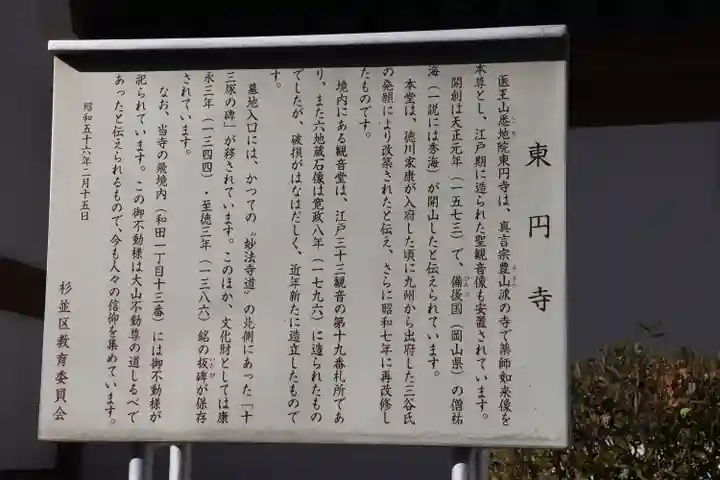 東円寺
医王山悉地院東円寺は、真言宗豊山派の寺で薬師如来像を
本尊とし、江戸期に造られた聖観音像も安置されています。
開創は天正元年（一五七三）で、備後国（岡山県）の僧祐
海（一説には秀海）が開山したと伝えられています。
本堂は、徳川家康が入府した頃に九州から出府した三谷氏
の発願により改築されたと伝え、さらに昭和七年に再改修し
たものです。
境内にある観音堂は、江戸三十三観音の第十九番札所であ
り、また六地蔵石像は寛政八年（一七九六）に造られたもの
でしたが、破損がはなはだしく、近年新たに造立したもので
す。
墓地入口には、かつての〝妙法寺道〟の北側にあった「十
三塚の碑」が移されています。このほか、文化財としては康
永三年（一三四四）・至徳三年（一三八六）銘の板碑が保存
されています。
なお、当寺の飛境内（和田一丁目十三番）には御不動様が
祀られています。この御不動様は大山不動尊の道しるべで
あったと伝えられるもので、今も人々の信仰を集めています。
昭和五十六年二月十五日
杉並区教育委員会